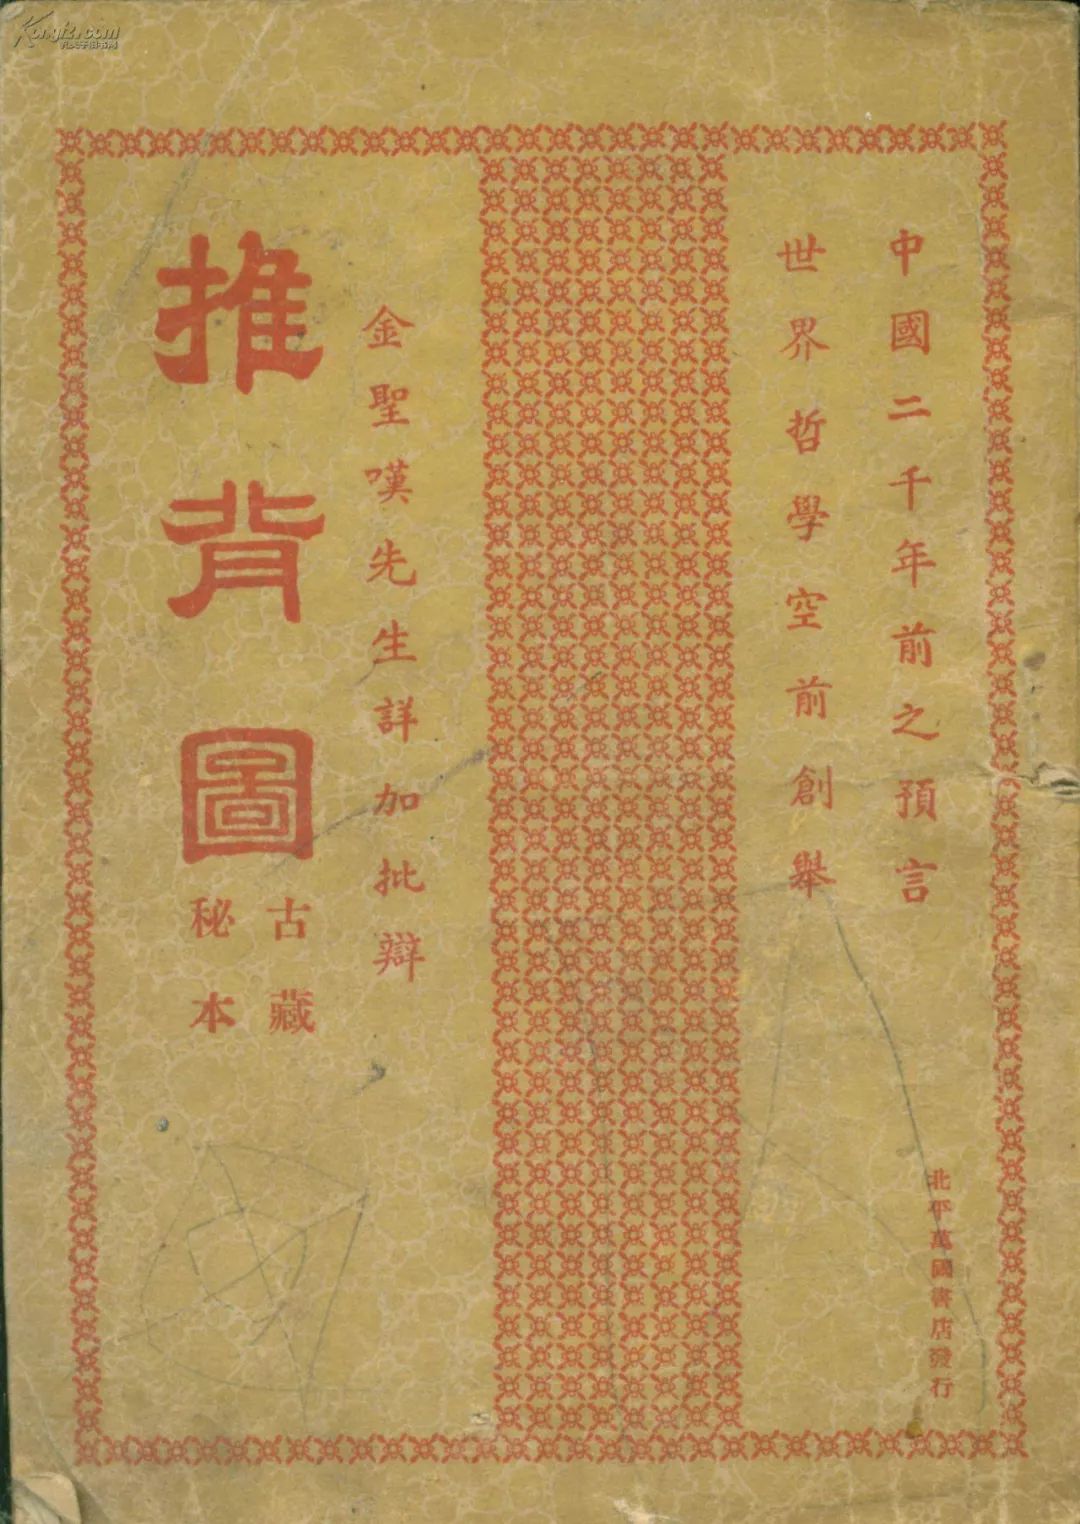 中國二千年前之預言
世界哲學空前創舉
金聖嘆先生詳加批辯
推背圖
古藏
秘本
北平萬國書店發行
Kongfz.com
孔夫子旧书网